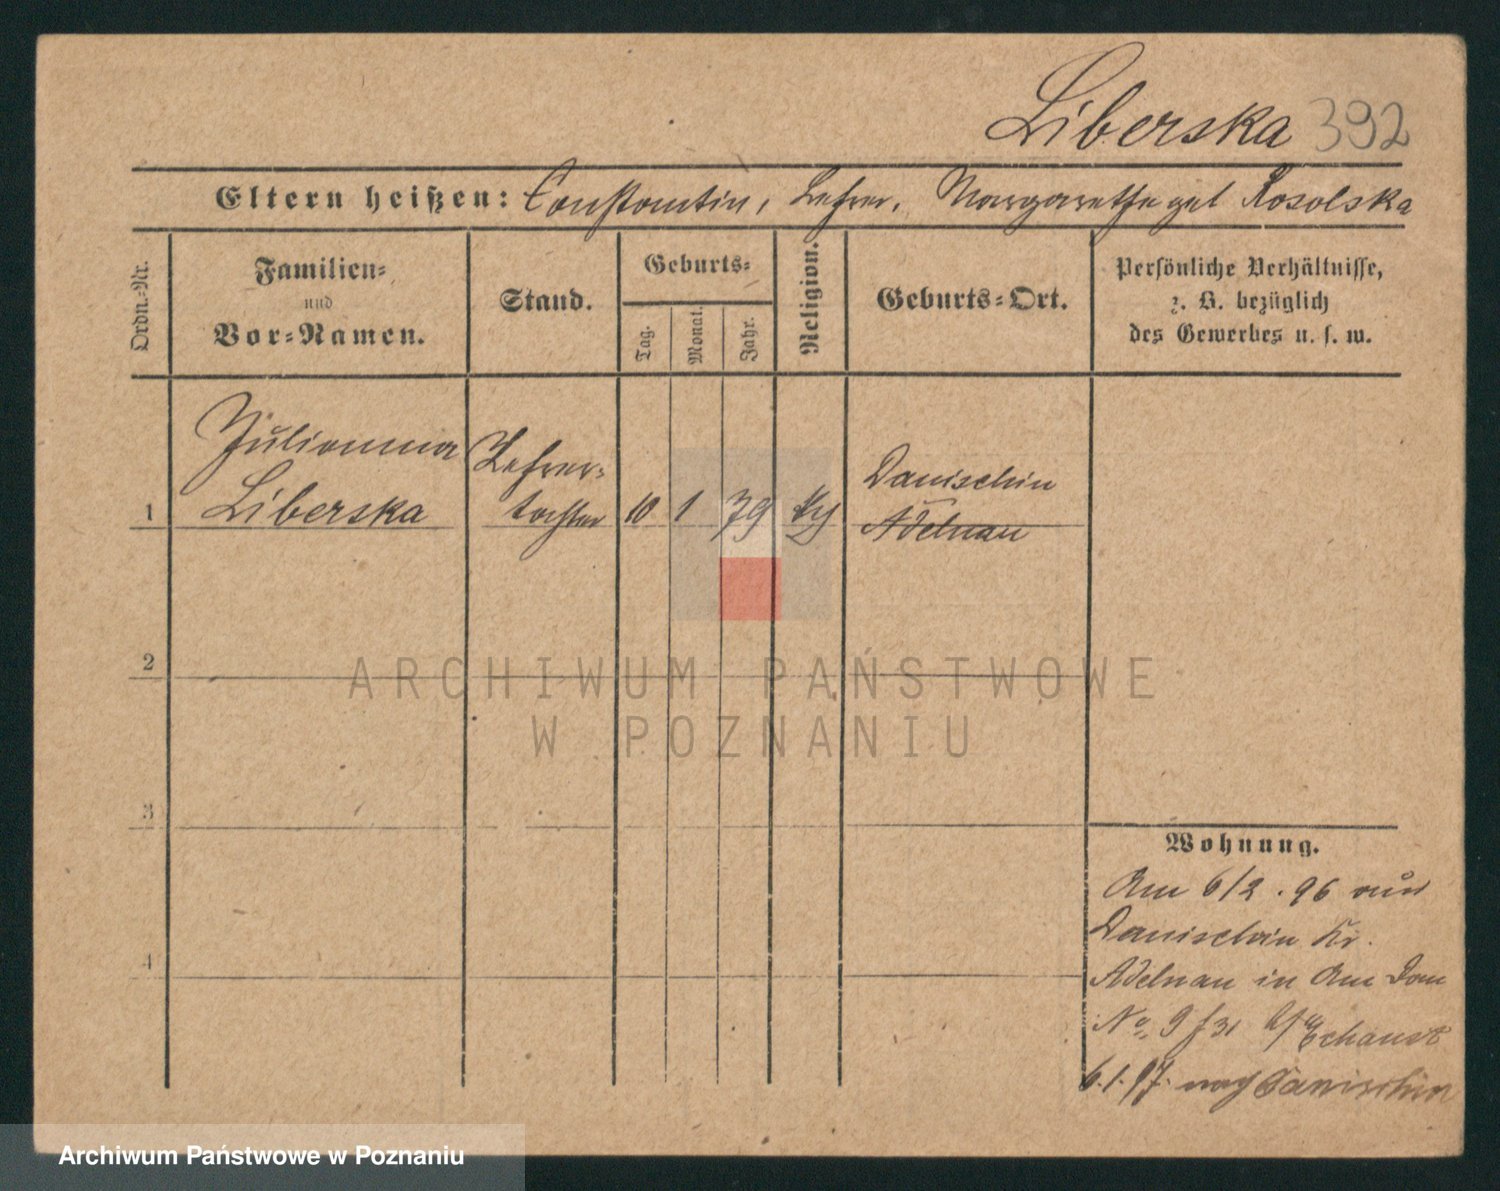 Liberska 392
Eltern heißen: Constantin, Lehrer, Margarethe geb Rosolska
Ordn.-Nr.
Familien-
und
Vor-Namen.
Stand.
Geburts-
Tag.
Monat.
Jahr.
Religion.
Geburts-Ort.
Persönliche Verhältnisse,
z. B. bezüglich
des Gewerbes u. s. w.
Julianna
Liberska
Lehrer-
tochter
1
10
1
79
Danischin
Adelnau
2
3
4
Wohnung.
Am 6/2. 96 aus
Danischin Kr.
Adelnau in Am Dom
No. 9 b/
6.1.97. nach Danischin
ARCHIWUM PAŃSTWOWE
W POZNANIU
Archiwum Państwowe w Poznaniu